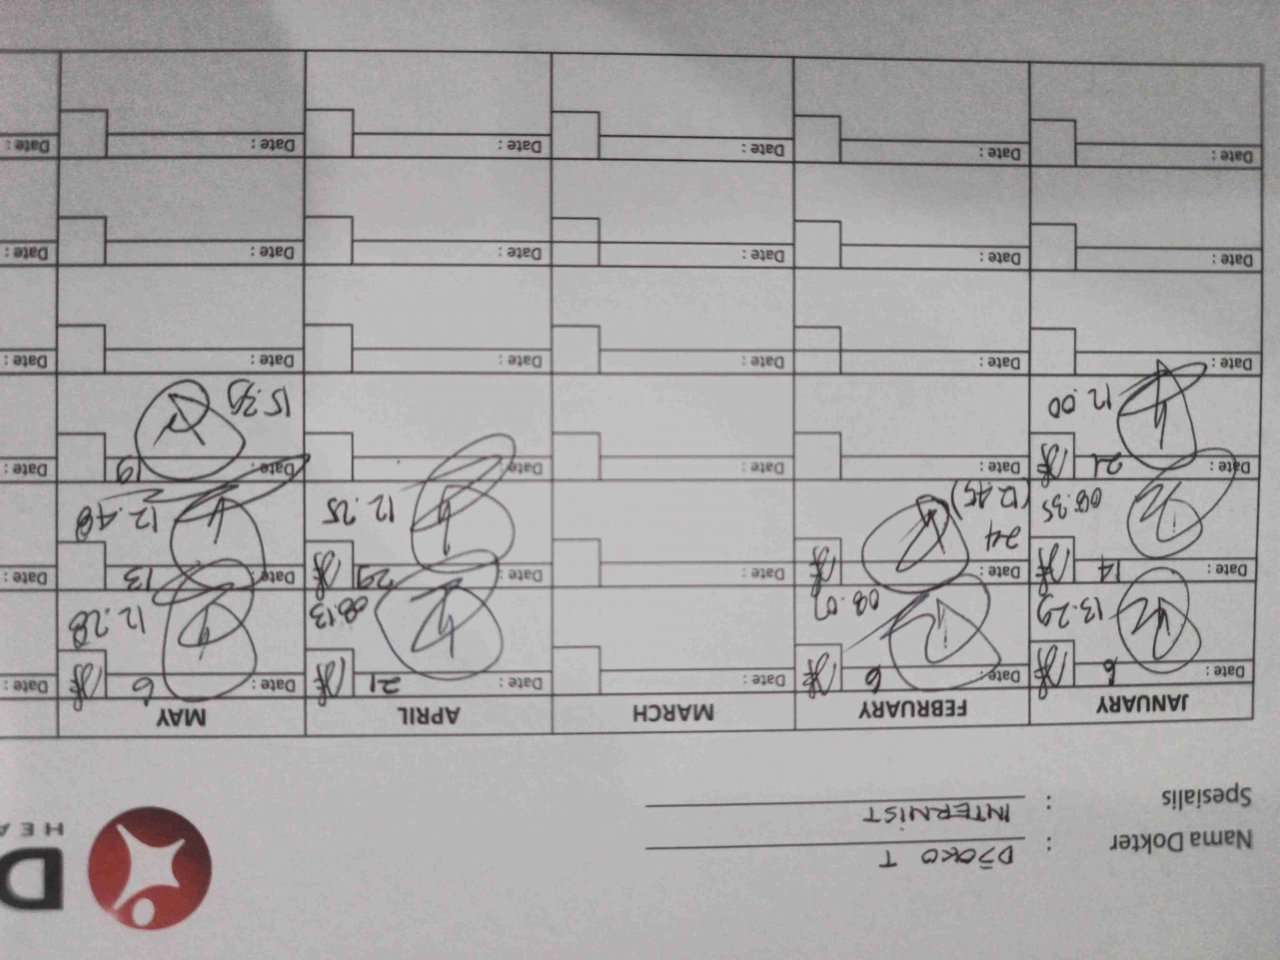 D
HEA
Nama Dokter : DJOKO T
Spesialis : INTERNIST
JANUARY FEBRUARY MARCH APRIL MAY
Date: 6 Date: 6 Date: Date: 21 Date: 6 Date:
13.29 08.07 08.13 12.28
Date: 14 Date: 24 Date: Date: 29 Date: 13 Date:
08.35 (12.45) 12.25 12.48
Date: 21 Date: Date: Date: Date: 19 Date:
12.00 15.35
Date: Date: Date: Date: Date: Date:
Date: Date: Date: Date: Date: Date:
Date: Date: Date: Date: Date: Date: